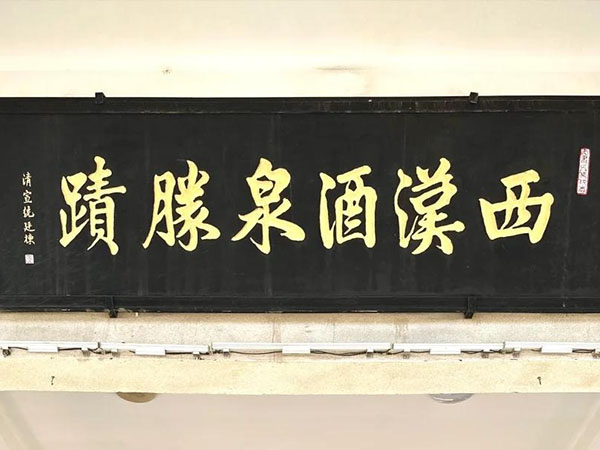 西漢酒泉勝蹟
清宣統廷棟